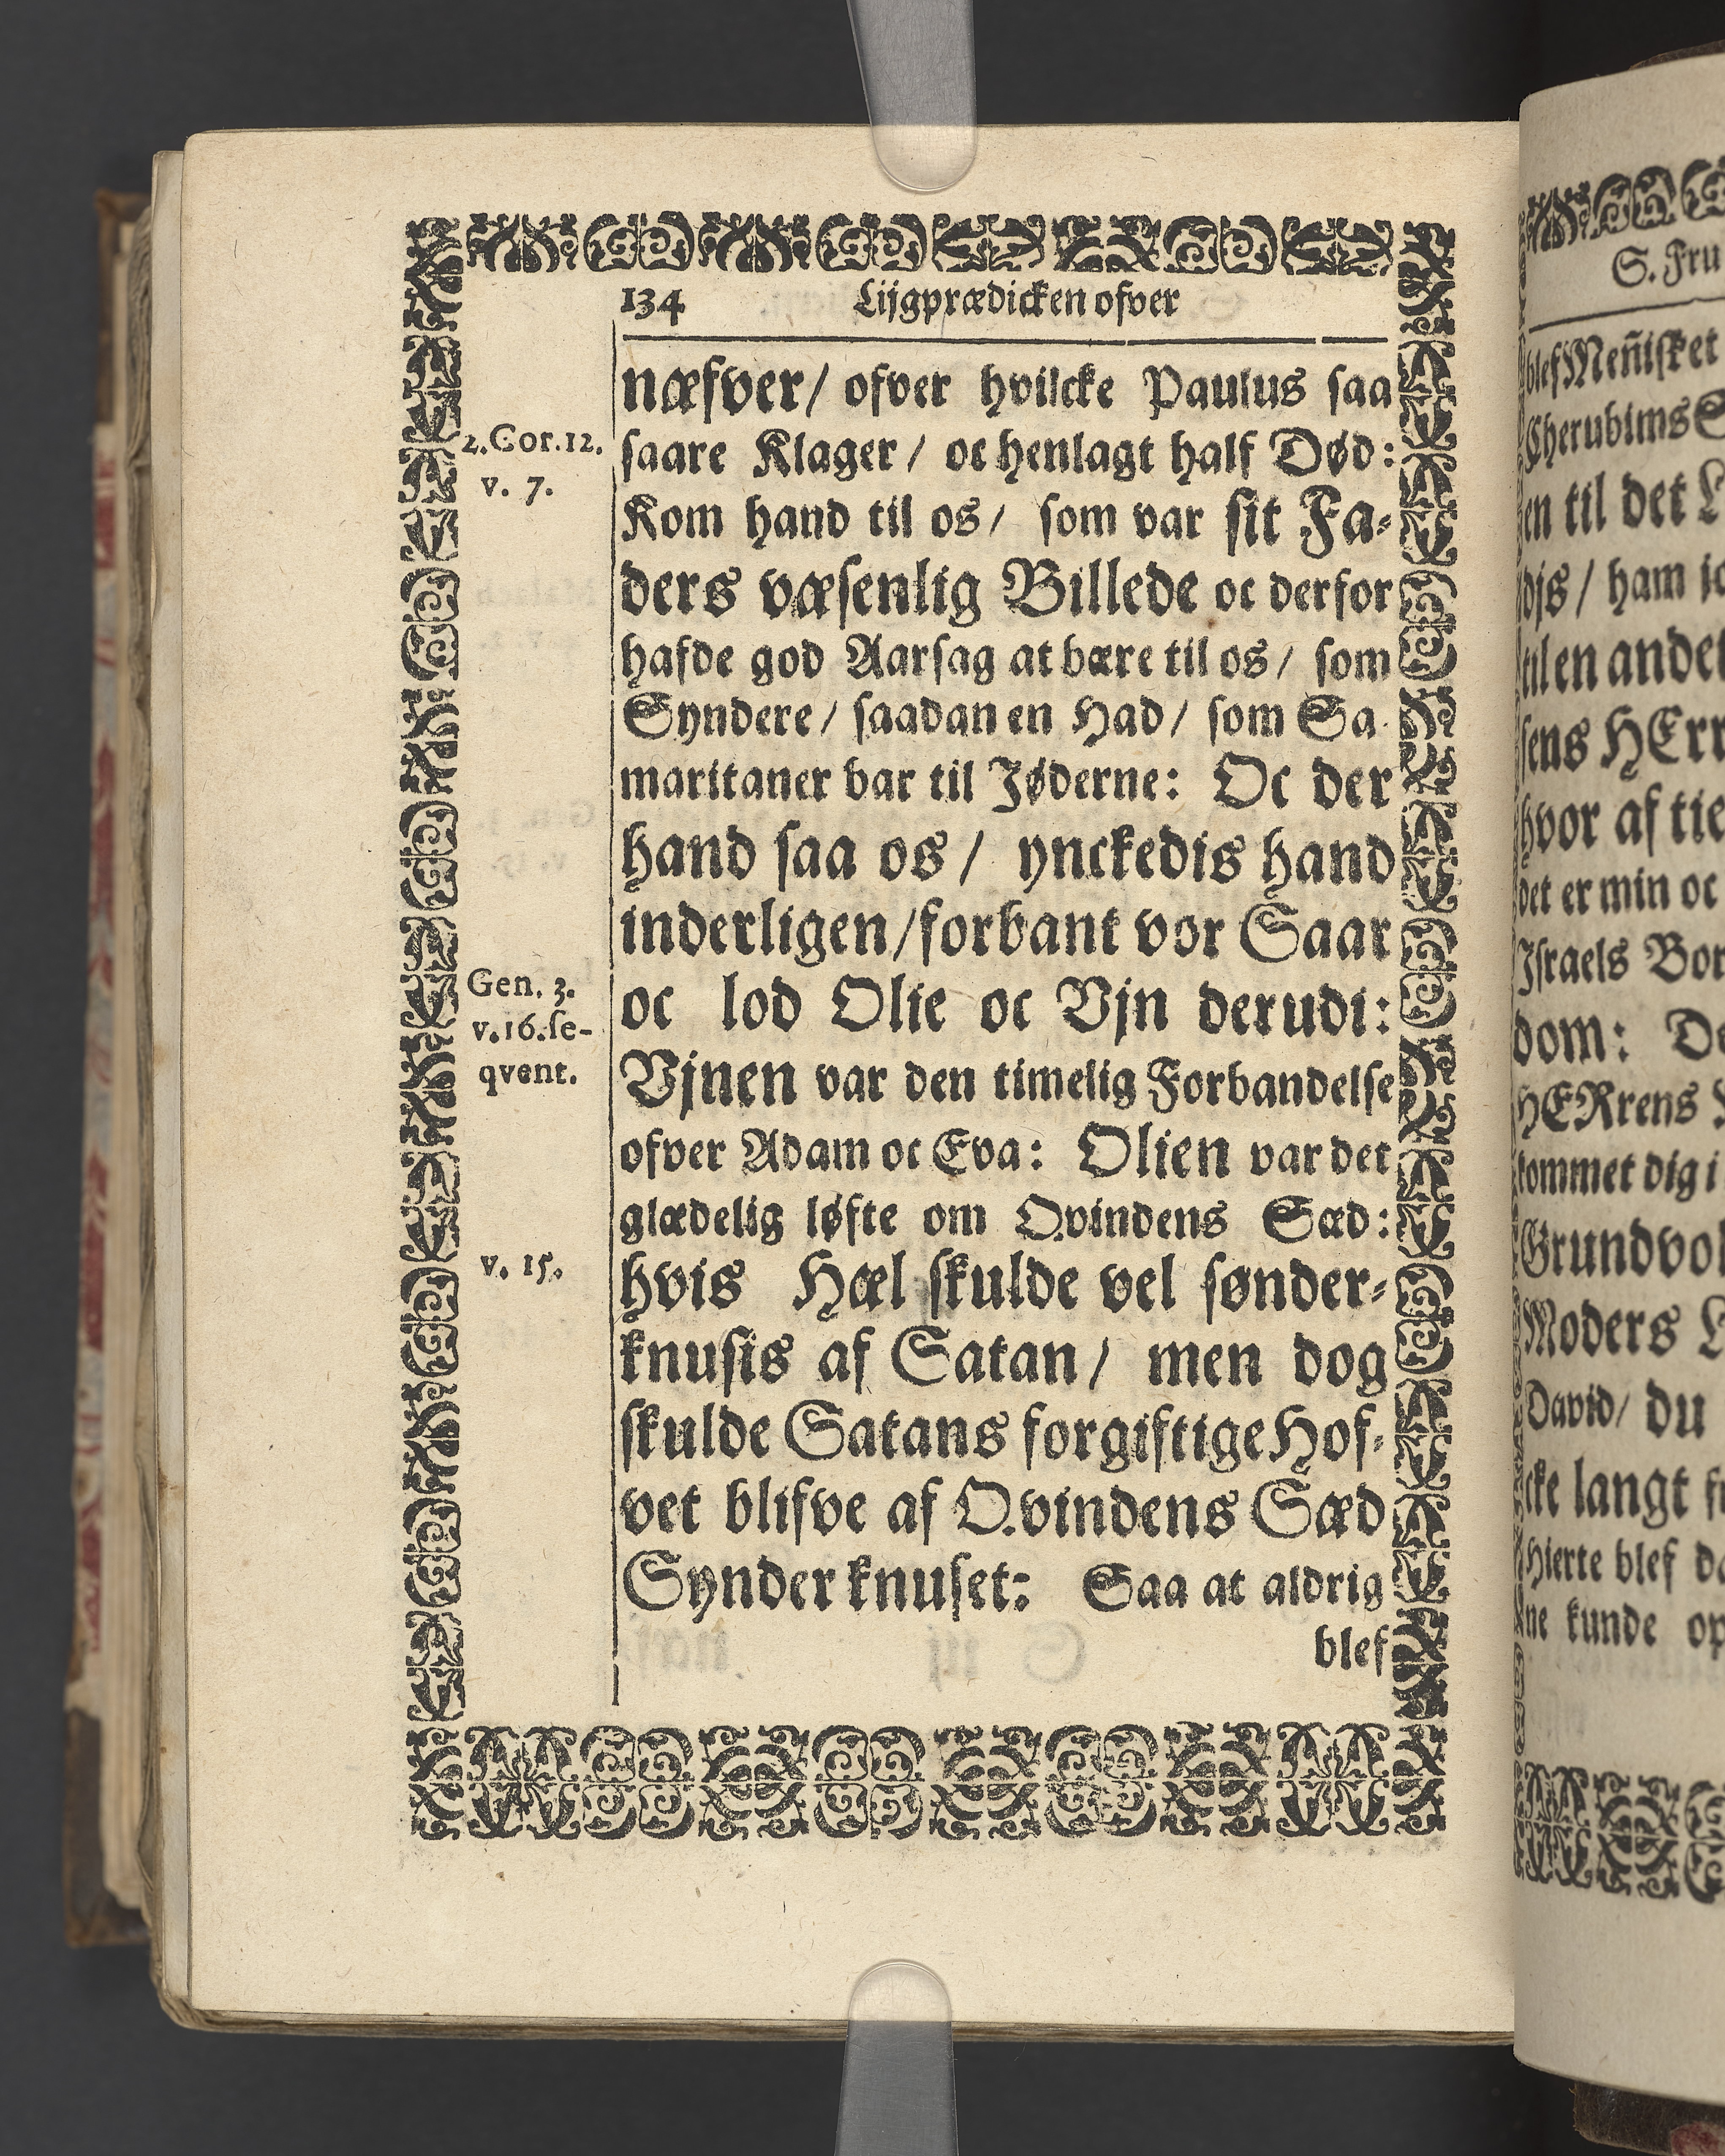 134 Lijgprædicken ofver
næfver/ ofver hvilcke Paulus saa
2.Cor.12.
v. 7.
saare Klager/ oc henlagt half Død:
Kom hand til os/ som var sit Fa-
ders væsenlig Billede oc derfor
hafde god Aarsag at bære til os/ som
Syndere/ saadan en Had/ som Sa-
maritaner bar til Jøderne: Oc der
hand saa os/ ynckedis hand
inderligen/forbant vor Saar
Gen. 3.
v.16.se-
qvent.
oc lod Olie oc Vjn derudi:
Vjnen var den timelig Forbandelse
ofver Adam oc Eva: Olien var det
glædelig løfte om Qvindens Sæd:
v. 15.
hvis Hæl skulde vel sønder-
knusis af Satan/ men dog
skulde Satans forgiftige Hof-
vet blifve af Qvindens Sæd
Synder knuset: Saa at aldrig
blef
S. Fru
blef Meñisket
Cherubims
en til det
djs/ ham
til en andet
sens HErr
hvor af tie
det er min oc
Israels Bor
dom: De
HERrens
kommet dig i
Grundvol
Moders
David/ du
cke langt
Hierte blef da
ne kunde op